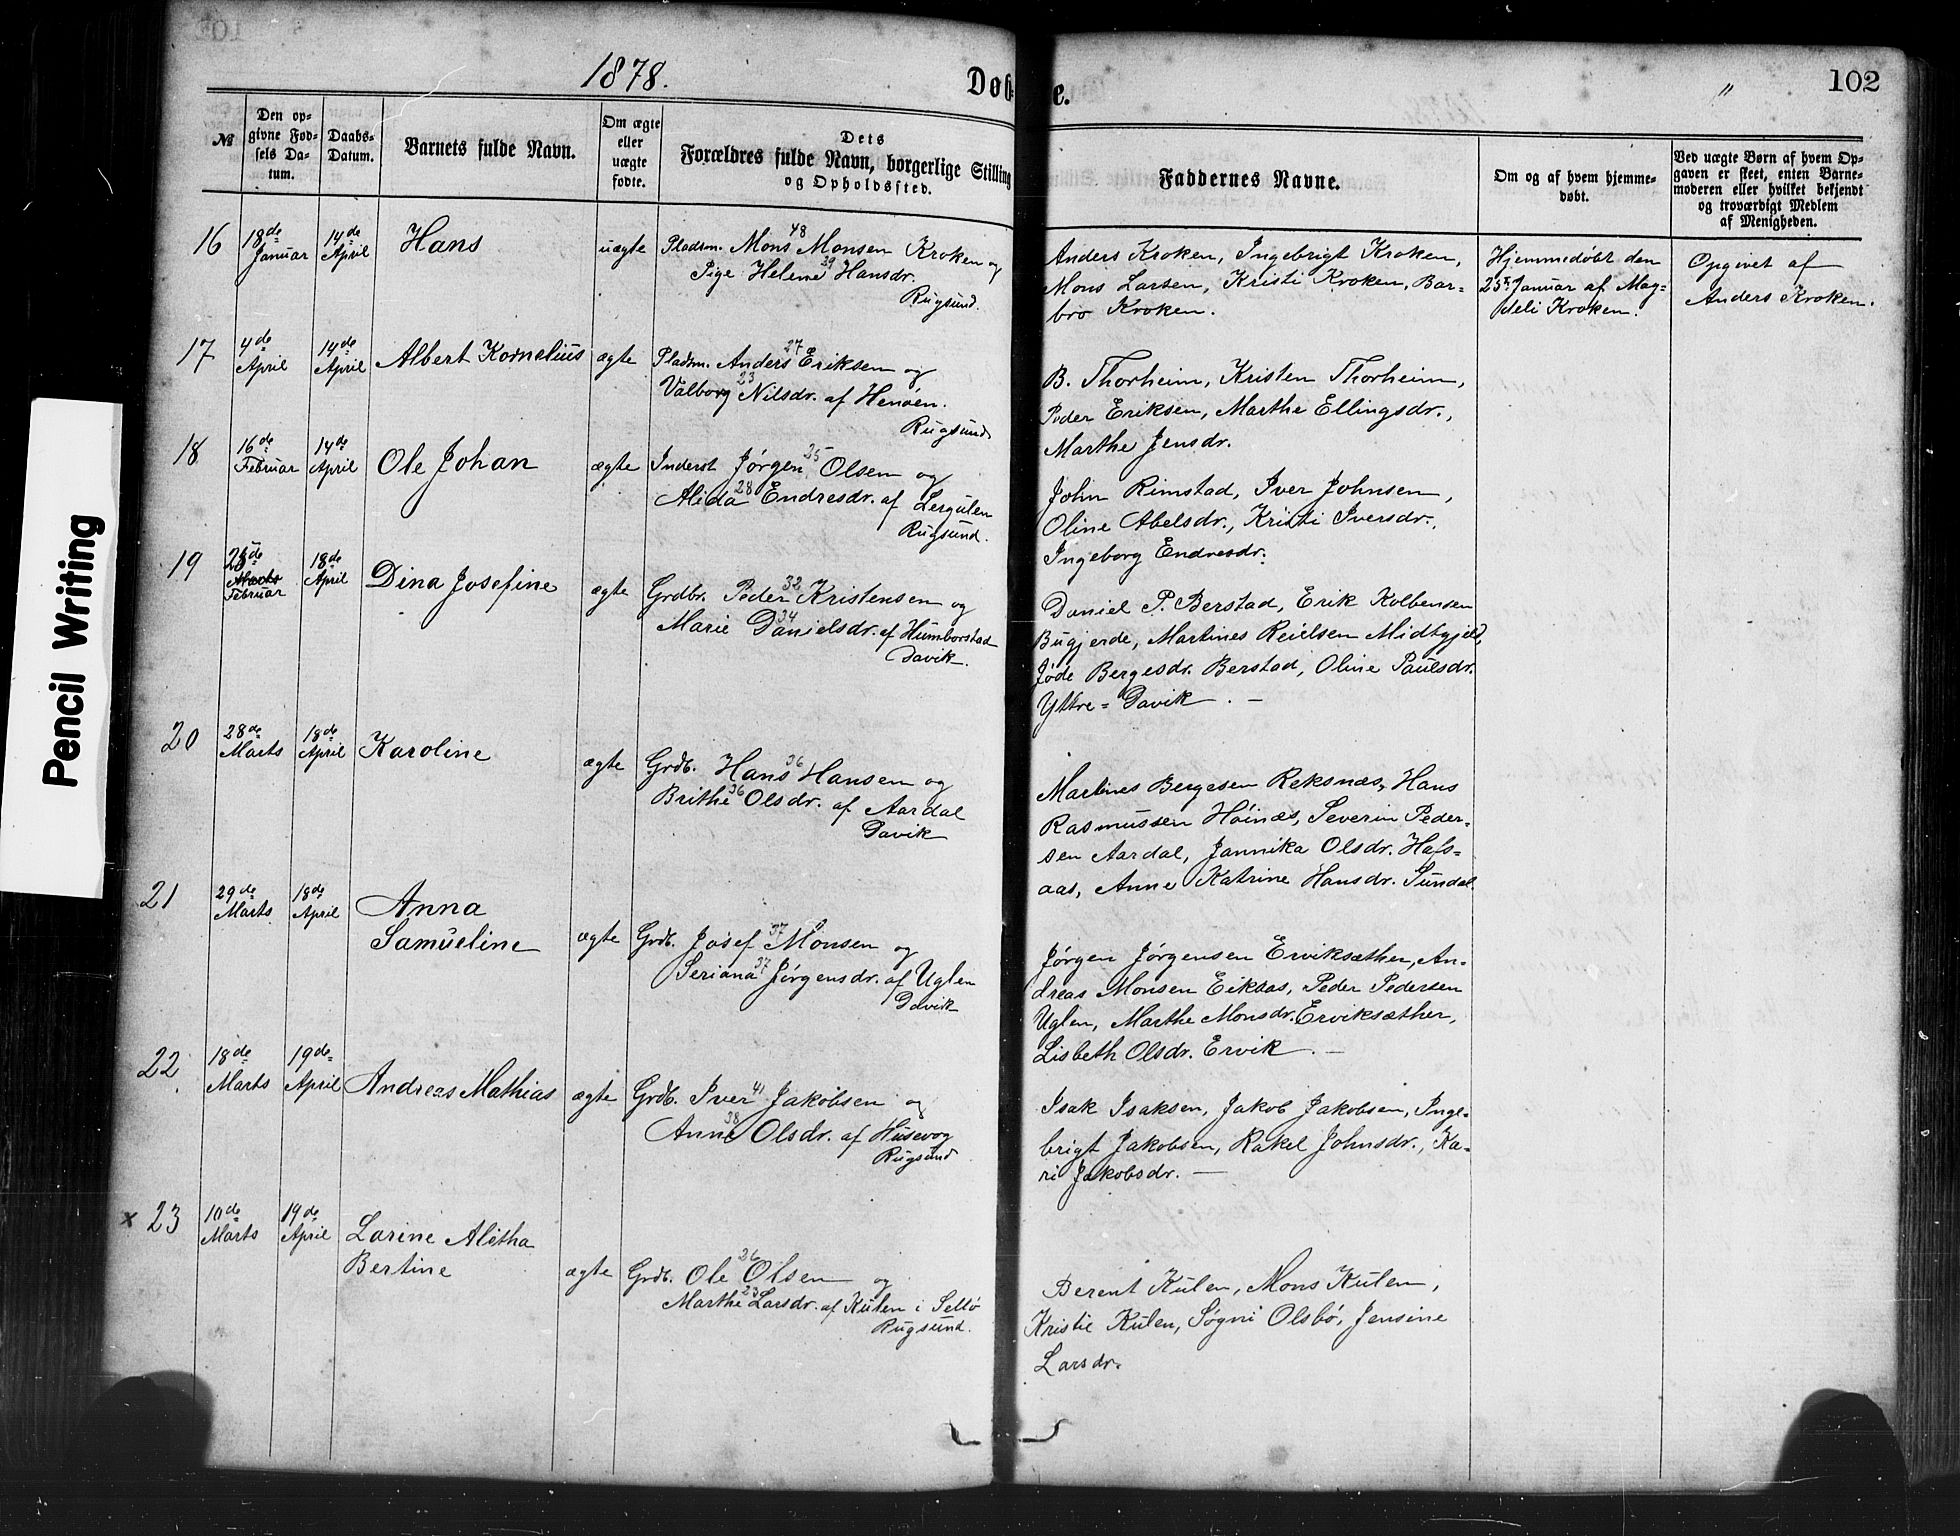 1878.
Døbte.
102
№
Den op-
givne Fød-
sels Da-
tum.
Daabs-
Datum.
Barnets fulde Navn.
Om ægte
eller
uægte
fødte.
Dets
Forældres fulde Navn, borgerlige Stilling
og Opholdssted.
Faddernes Navne.
Om og af hvem hjemme-
døbt.
Ved uægte Børn af hvem Op-
gaven er skeet, enten Barne-
moderen eller hvilket bekjendt
og troværdigt Medlem
af Menigheden.
16
18de
Januar
14de
April
Hans
uægte
Pladsm. Mons 48 Monsen Kroken og
Pige Helene 29 Hansdr.
Rugsund.
Anders Kroken, Ingebrigt Kroken,
Mons Larsen, Kristi Kroken, Bar=
bro Kroken.
Hjemmedøbt den
25 Januar af Mag=
deli Kroken.
Opgivet af
Anders Kroken.
17
4de
April
14de
April
Albert Kornelius
ægte
Pladsm. Anders 27 Eriksen og
Valborg 23 Nilsdr. af Henøen.
Rugsund
B. Thorheim, Kristen Thorheim,
Peder Eriksen, Marthe Ellingsdr.,
Marthe Jensdr.
18
16de
Februar
14de
April
Ole Johan
ægte
Inderst Jørgen 25 Olsen og
Alida 28 Endresdr. af Lergulen
Rugsund.
John Rimstad, Iver Johnsen,
Oline Abelsdr., Kristi Iversdr.,
Ingeborg Endresdr.
19
Marts
Februar
18de
April
Dina Josefine
ægte
Grdbr. Peder 32 Kristensen og
Marie 34 Danielsdr. af Humborstad
Davik.
Daniel P. Berstad, Erik Kolbensen
Bugjerde, Martines Reielsen Midtgjeld,
Jøde Bergesdr. Berstad, Oline Paulsdr.
Yttre=Davik. —
20
28de
Marts
18de
April
Karoline
ægte
Grdb. Hans 36 Hansen og
Brithe 36 Olsdr. af Aardal
Davik
Martines Bergesen Reksnæs, Hans
Rasmussen Høinæs, Severin Peder=
sen Aardal, Jannika Olsdr. Hafs=
aas, Anne Katrine Hansdr. Sundal.
21
29de
Marts
18de
April
Anna
Samueline
ægte
Grdb. Josef 37 Monsen og
Seriana 37 Jørgensdr. af Uglen
Davik
Jørgen Jørgensen Erviksæther, An=
dreas Monsen Eikaas, Peder Pedersen
Uglen, Marthe Monsdr. Erviksæther,
Lisbeth Olsdr. Ervik. —
22
18de
Marts
19de
April
Andreas Mathias
ægte
Grdb. Iver 41 Jakobsen og
Anne 38 Olsdr. af Husevog
Rugsund
Isak Isaksen, Jakob Jakobsen, Inge=
brigt Jakobsen, Rakel Johnsdr., Ka=
ri Jakobsdr. —
x 23
10de
Marts
19de
April
Larine Alétha
Bertine
ægte
Grdb. Ole 26 Olsen og
Marthe 23 Larsdr. af Kulen i Sellø
Rugsund.
Berent Kulen, Mons Kulen,
Kristie Kulen, Søgni Olsbø, Jensine
Larsdr.
Pencil Writing